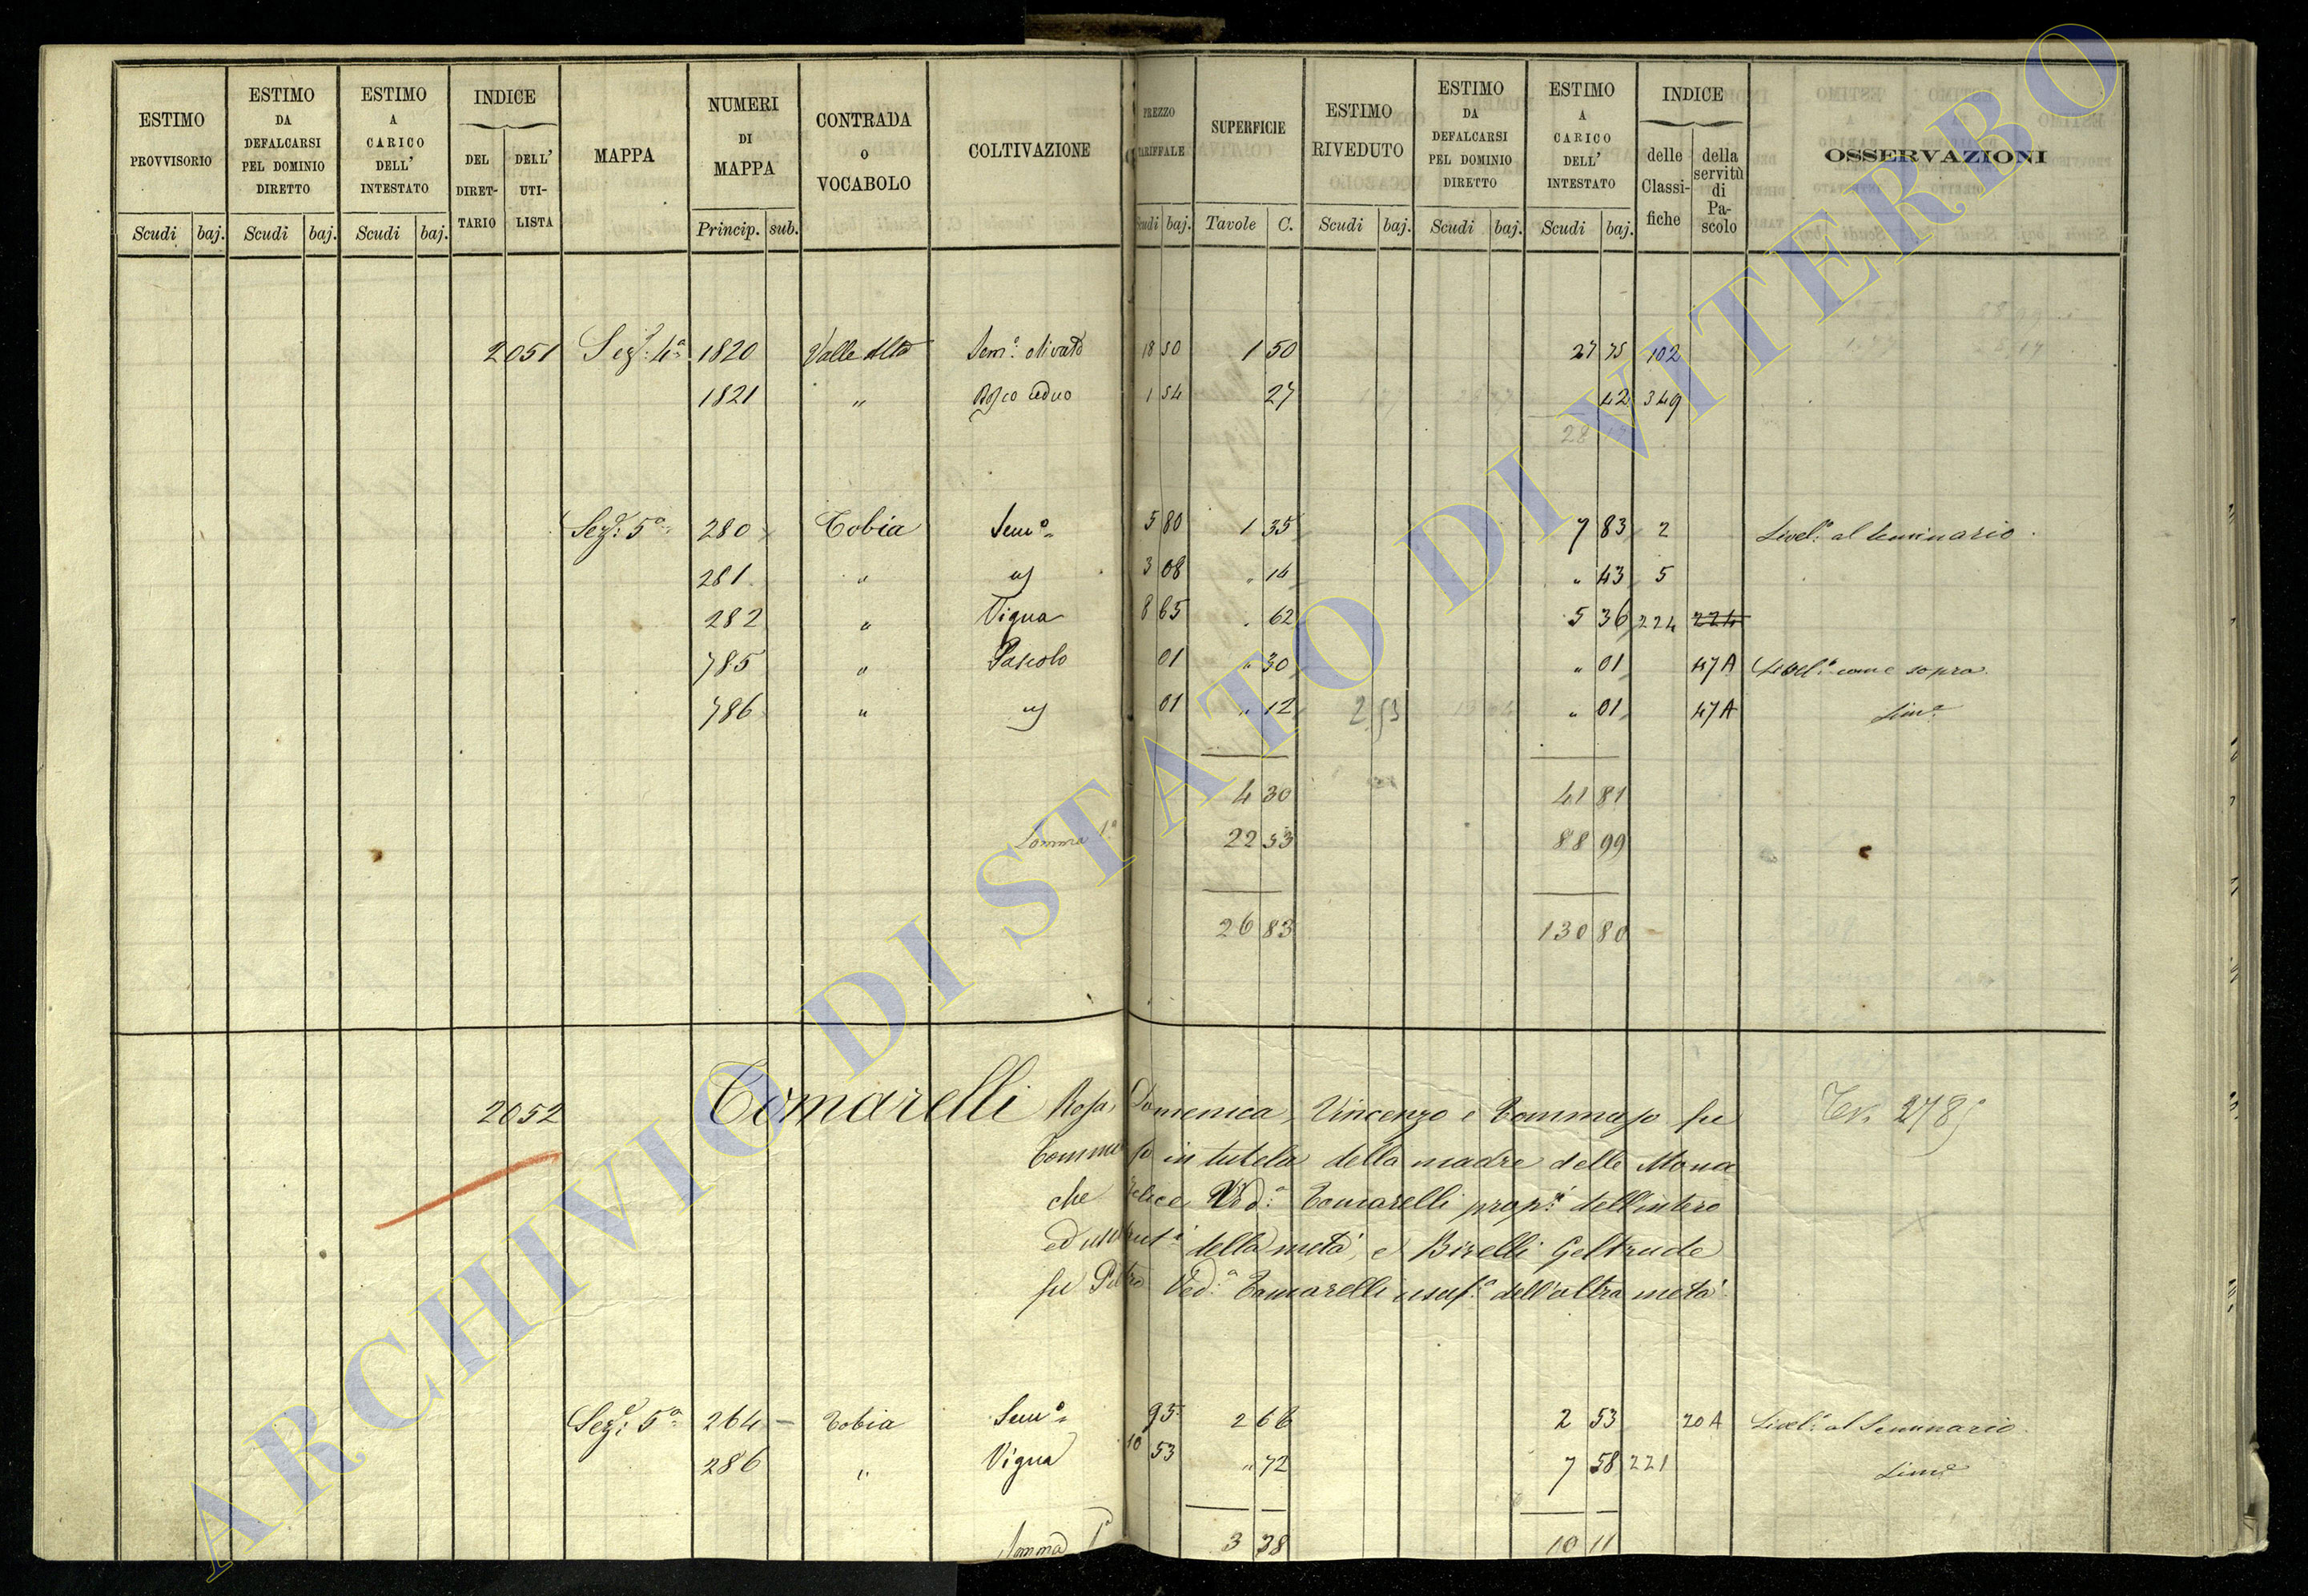 ESTIMO PROVVISORIO | ESTIMO DA DEFALCARSI PEL DOMINIO DIRETTO | ESTIMO A CARICO DELL' INTESTATO | INDICE | MAPPA | NUMERI DI MAPPA | CONTRADA O VOCABOLO | COLTIVAZIONE | PREZZO TARIFFALE | SUPERFICIE | ESTIMO RIVEDUTO | ESTIMO DA DEFALCARSI PEL DOMINIO DIRETTO | ESTIMO A CARICO DELL' INTESTATO | INDICE | OSSERVAZIONI
DEL DIRET-TARIO | DELL' UTI-LISTA | delle Classi-fiche | della servitù di Pa-scolo
Scudi | baj. | Scudi | baj. | Scudi | baj. | Princip. | sub. | Scudi | baj. | Tavole | C. | Scudi | baj. | Scudi | baj. | Scudi | baj.
2051 Seze: 4a 1820 Valle Alta Semo: olivato 18 50 1 50 27 75 102
1821 " Bosco ceduo 1 54 27 42 349
28
Seze: 5a 280 Tobia Semo 5 80 1 35 7 83 2 Livelo: al Seminario
281 " " 3 08 " 14 " 43 5
282 " Vigna 8 65 " 62 5 36 224 224
785 " Pascolo 01 " 30 " 01 47A Livelo: come sopra
786 " " 01 " 12 2 53 " 01 47A Sime
4 30 41 81
Somma 1a 22 53 88 99
26 83 130 80
2052 Tomarelli Rosa, Domenica, Vincenzo e Tommaso fu Tv. 2785
Tommaso in tutela della madre delle Mona
che Felice Veda: Tomarelli propri: dell'intero
ed usufruti: della metà, e Birelli Geltrude
fu Pietro Veda: Tomarelli usufa: dell'altra metà
Seze: 5a 264 – Tobia Semo 95 2 66 2 53 20 A Livelo: al Seminario
286 " Vigna 10 53 " 72 7 58 221 Sime
Somma 1a 3 38 10 11
ARCHIVIO DI STATO DI VITERBO